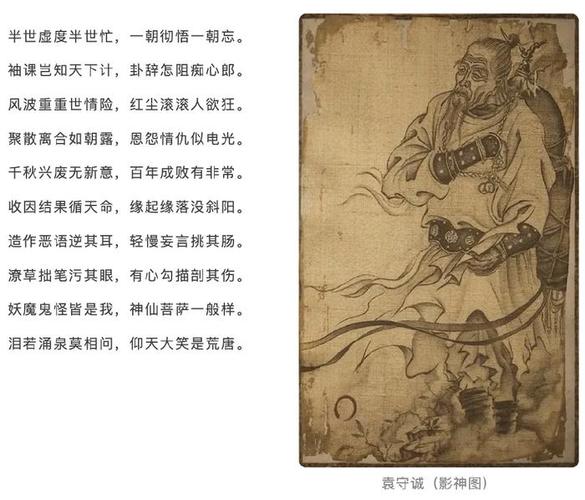 半世虚度半世忙，一朝彻悟一朝忘。
袖课岂知天下计，卦辞怎阻痴心郎。
风波重重世情险，红尘滚滚人欲狂。
聚散离合如朝露，恩怨情仇似电光。
千秋兴废无新意，百年成败有非常。
收因结果循天命，缘起缘落没斜阳。
造作恶语逆其耳，轻慢妄言挑其肠。
潦草拙笔污其眼，有心勾描剖其伤。
妖魔鬼怪皆是我，神仙菩萨一般样。
泪若涌泉莫相问，仰天大笑是荒唐。
袁守诚（影神图）